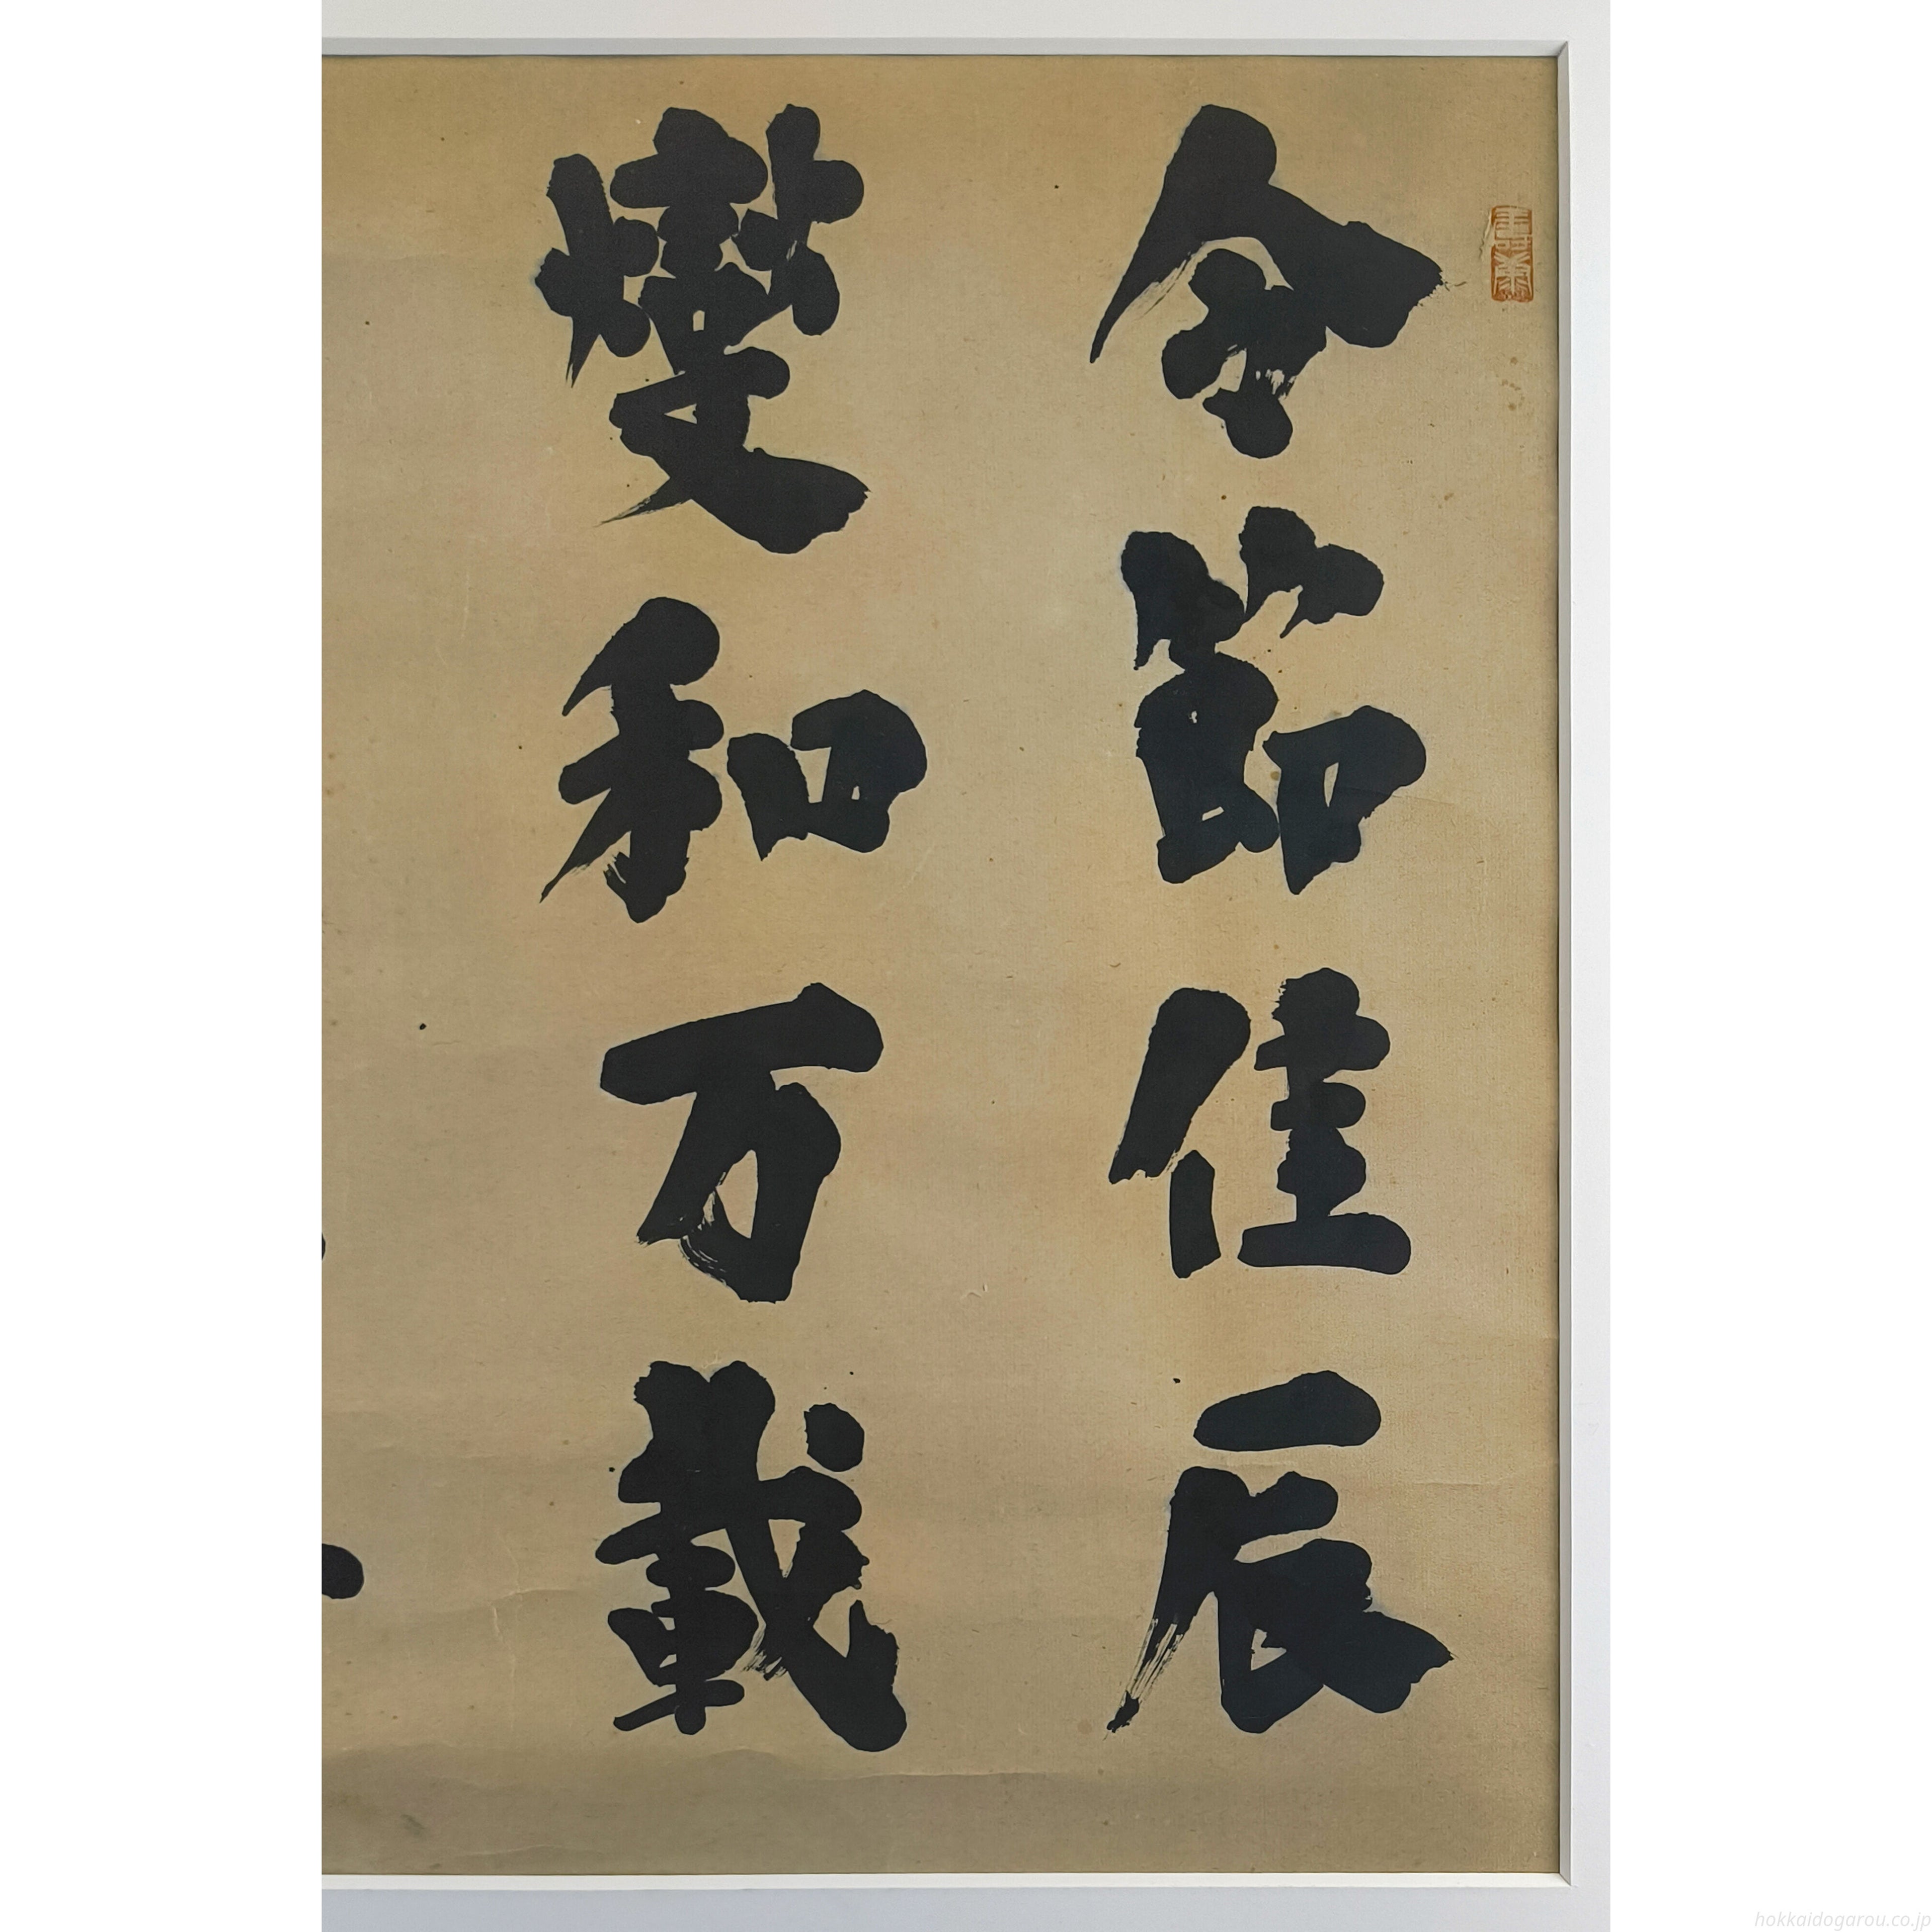 令節佳辰
燮和万載
hokkaidogarou.co.jp